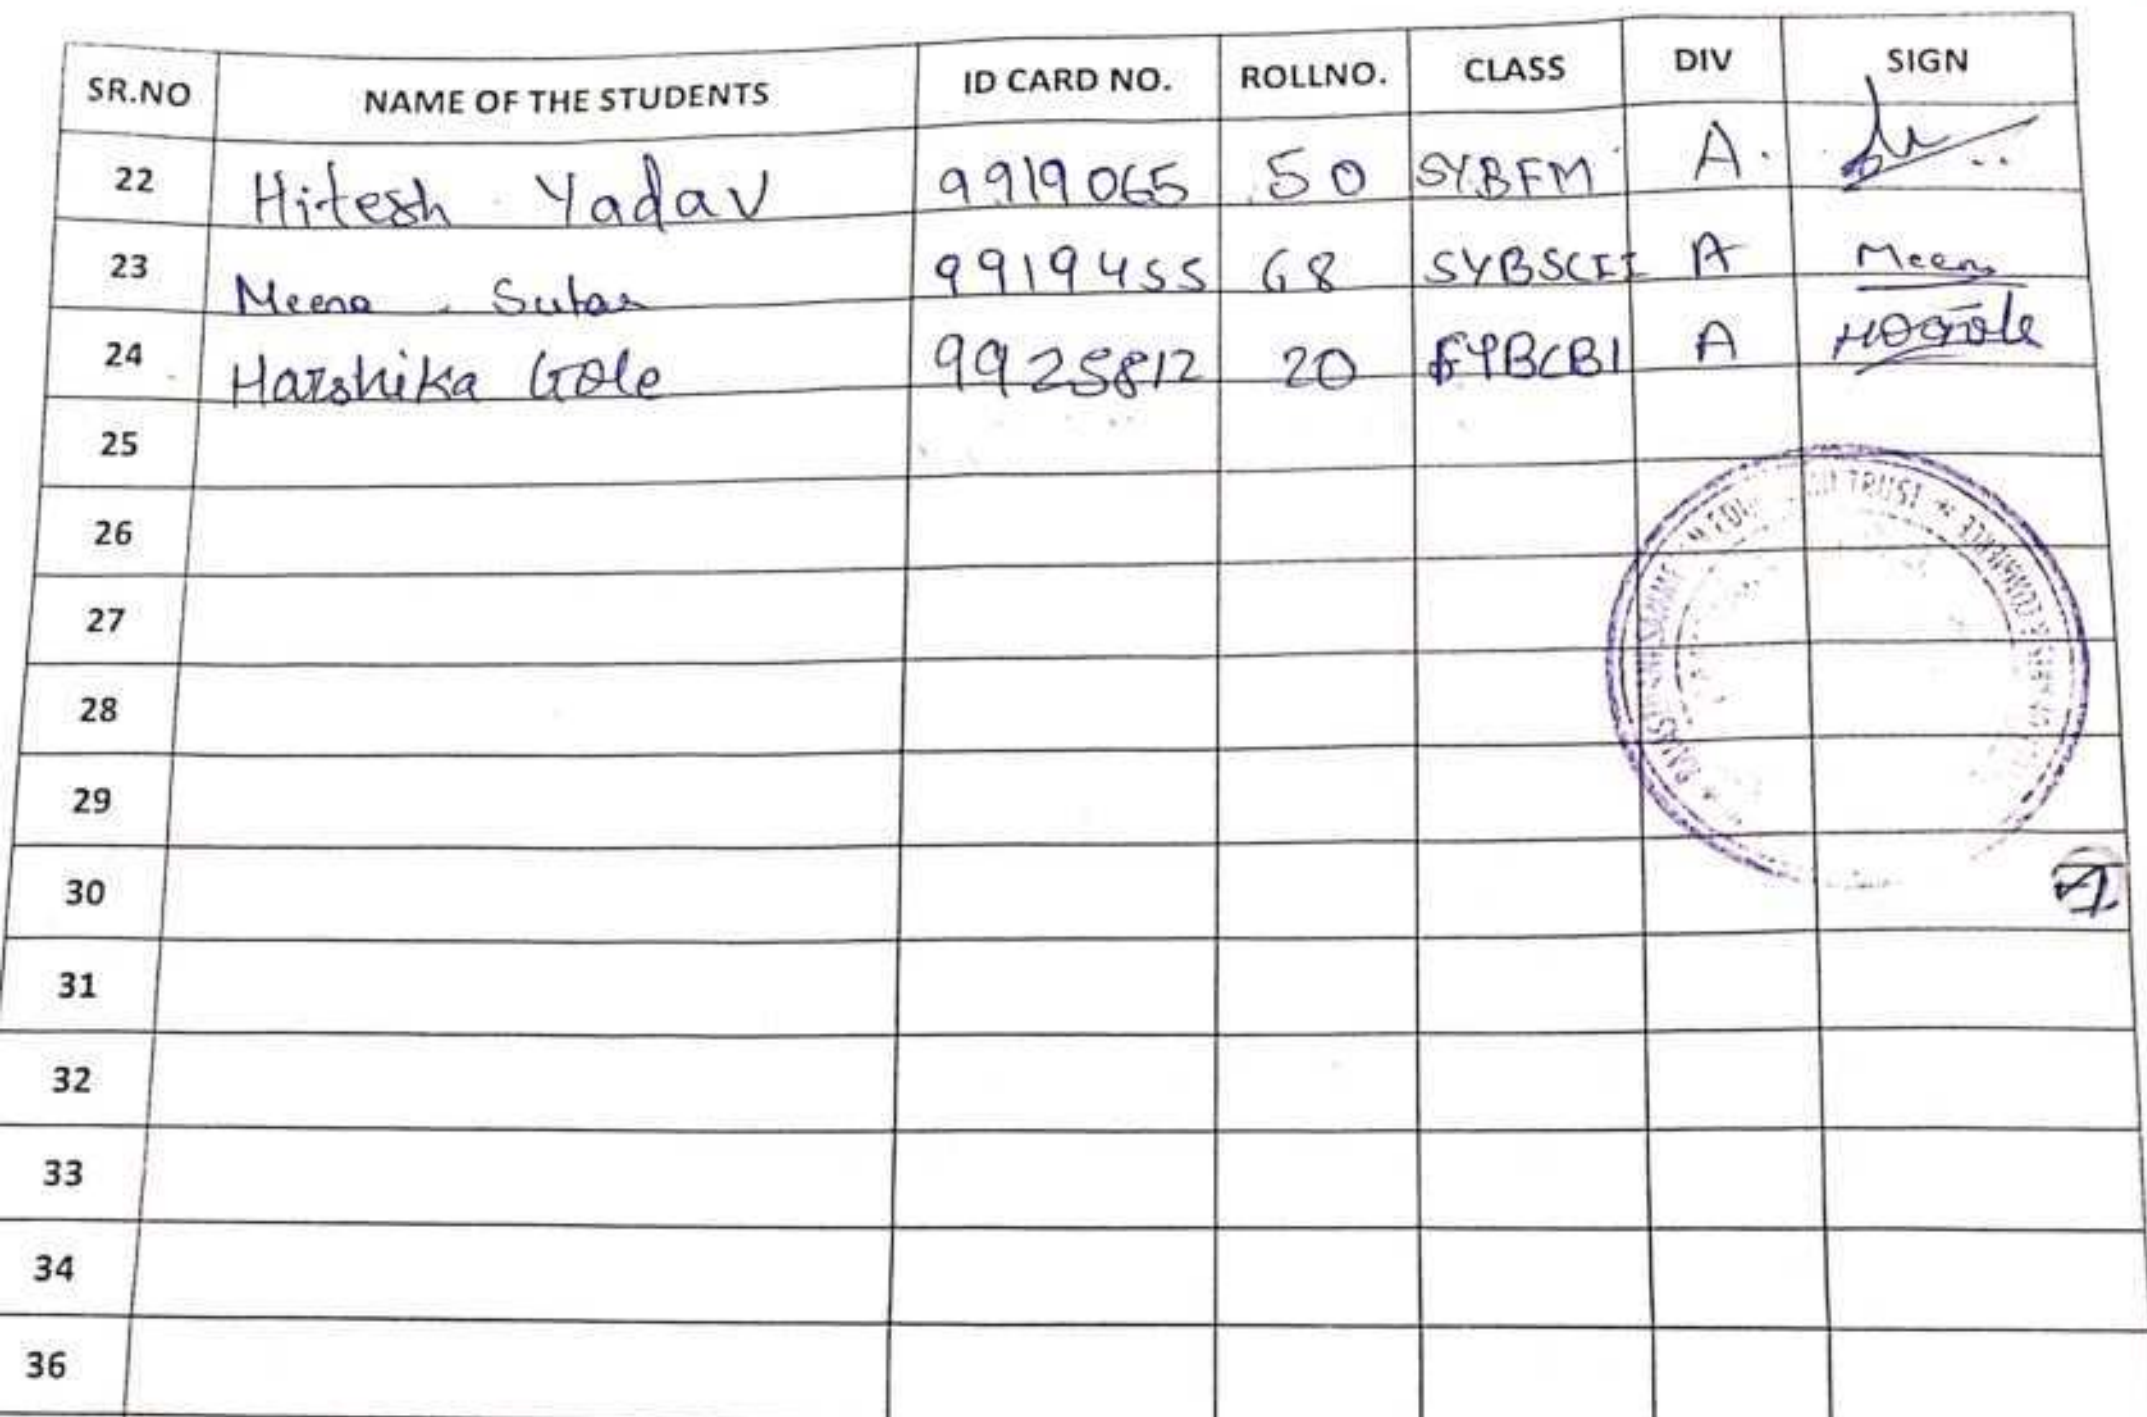 SR.NO NAME OF THE STUDENTS ID CARD NO. ROLLNO. CLASS DIV SIGN
22 Hitesh Yadav 9919065 50 SYBFM A.
23 Meena Sutar 9919455 68 SYBSCII A Meena
24 Harshika Gole 9925812 20 FYBCBI A HOGole
25
26
27
28
29
30
31
32
33
34
36
TRUST